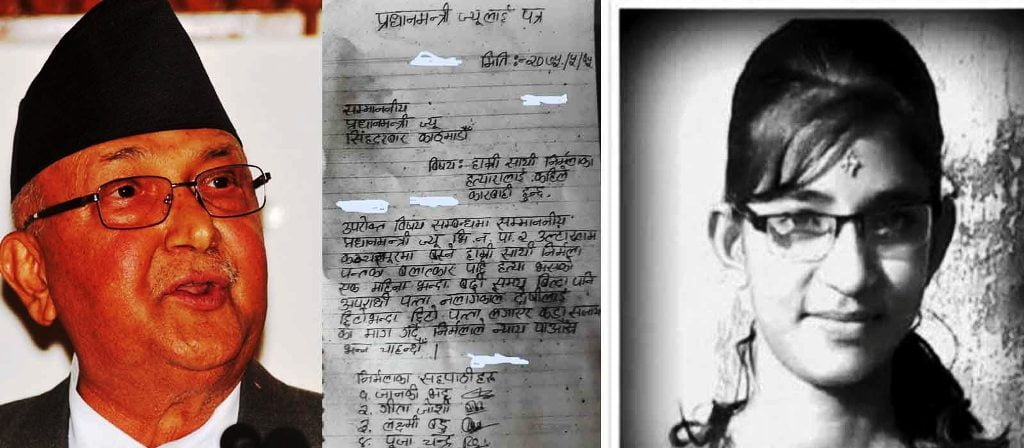 प्रधानमन्त्री ज्यूलाई पत्र
मिति :- २०७५/५/५
सम्माननीय
प्रधानमन्त्री ज्यू
सिंहदरबार काठमाडौँ
विषय :- हाम्री साथी निर्मलाका
हत्यारालाई कहिले
कारबाही हुन्छ.
उपरोक्त विषय सम्बन्धमा सम्माननीय
प्रधानमन्त्री ज्यू भि.न.पा. २ उल्टाखाम
कञ्चनपुरमा बस्ने हाम्री साथी निर्मला
पन्तका बलात्कार पछि हत्या भएको
एक महिना भन्दा बढी समय बित्दा पनि
अपराधी पत्ता नलागेकाले दोषीलाई
छिटोभन्दा छिटो पत्ता लगाएर कडा सजाय
का माग गर्दै निर्मलाले न्याय पाओस्
भन्न चाहन्छौं |
निर्मलाका सहपाठीहरू
१. जानकी भट्ट
२. गीता जोशी
३. लक्ष्मी बडु
४. पूजा चन्द